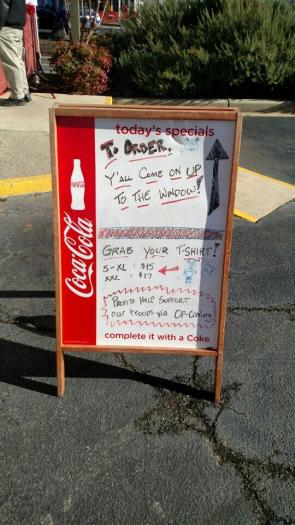 today's specials
To Order,
Y'all Come on UP
To The Window!
Coca-Cola
Grab Your T-Shirt!
S-XL : $15
XXL : $17
Profits Help Support
our troops via
complete it with a Coke